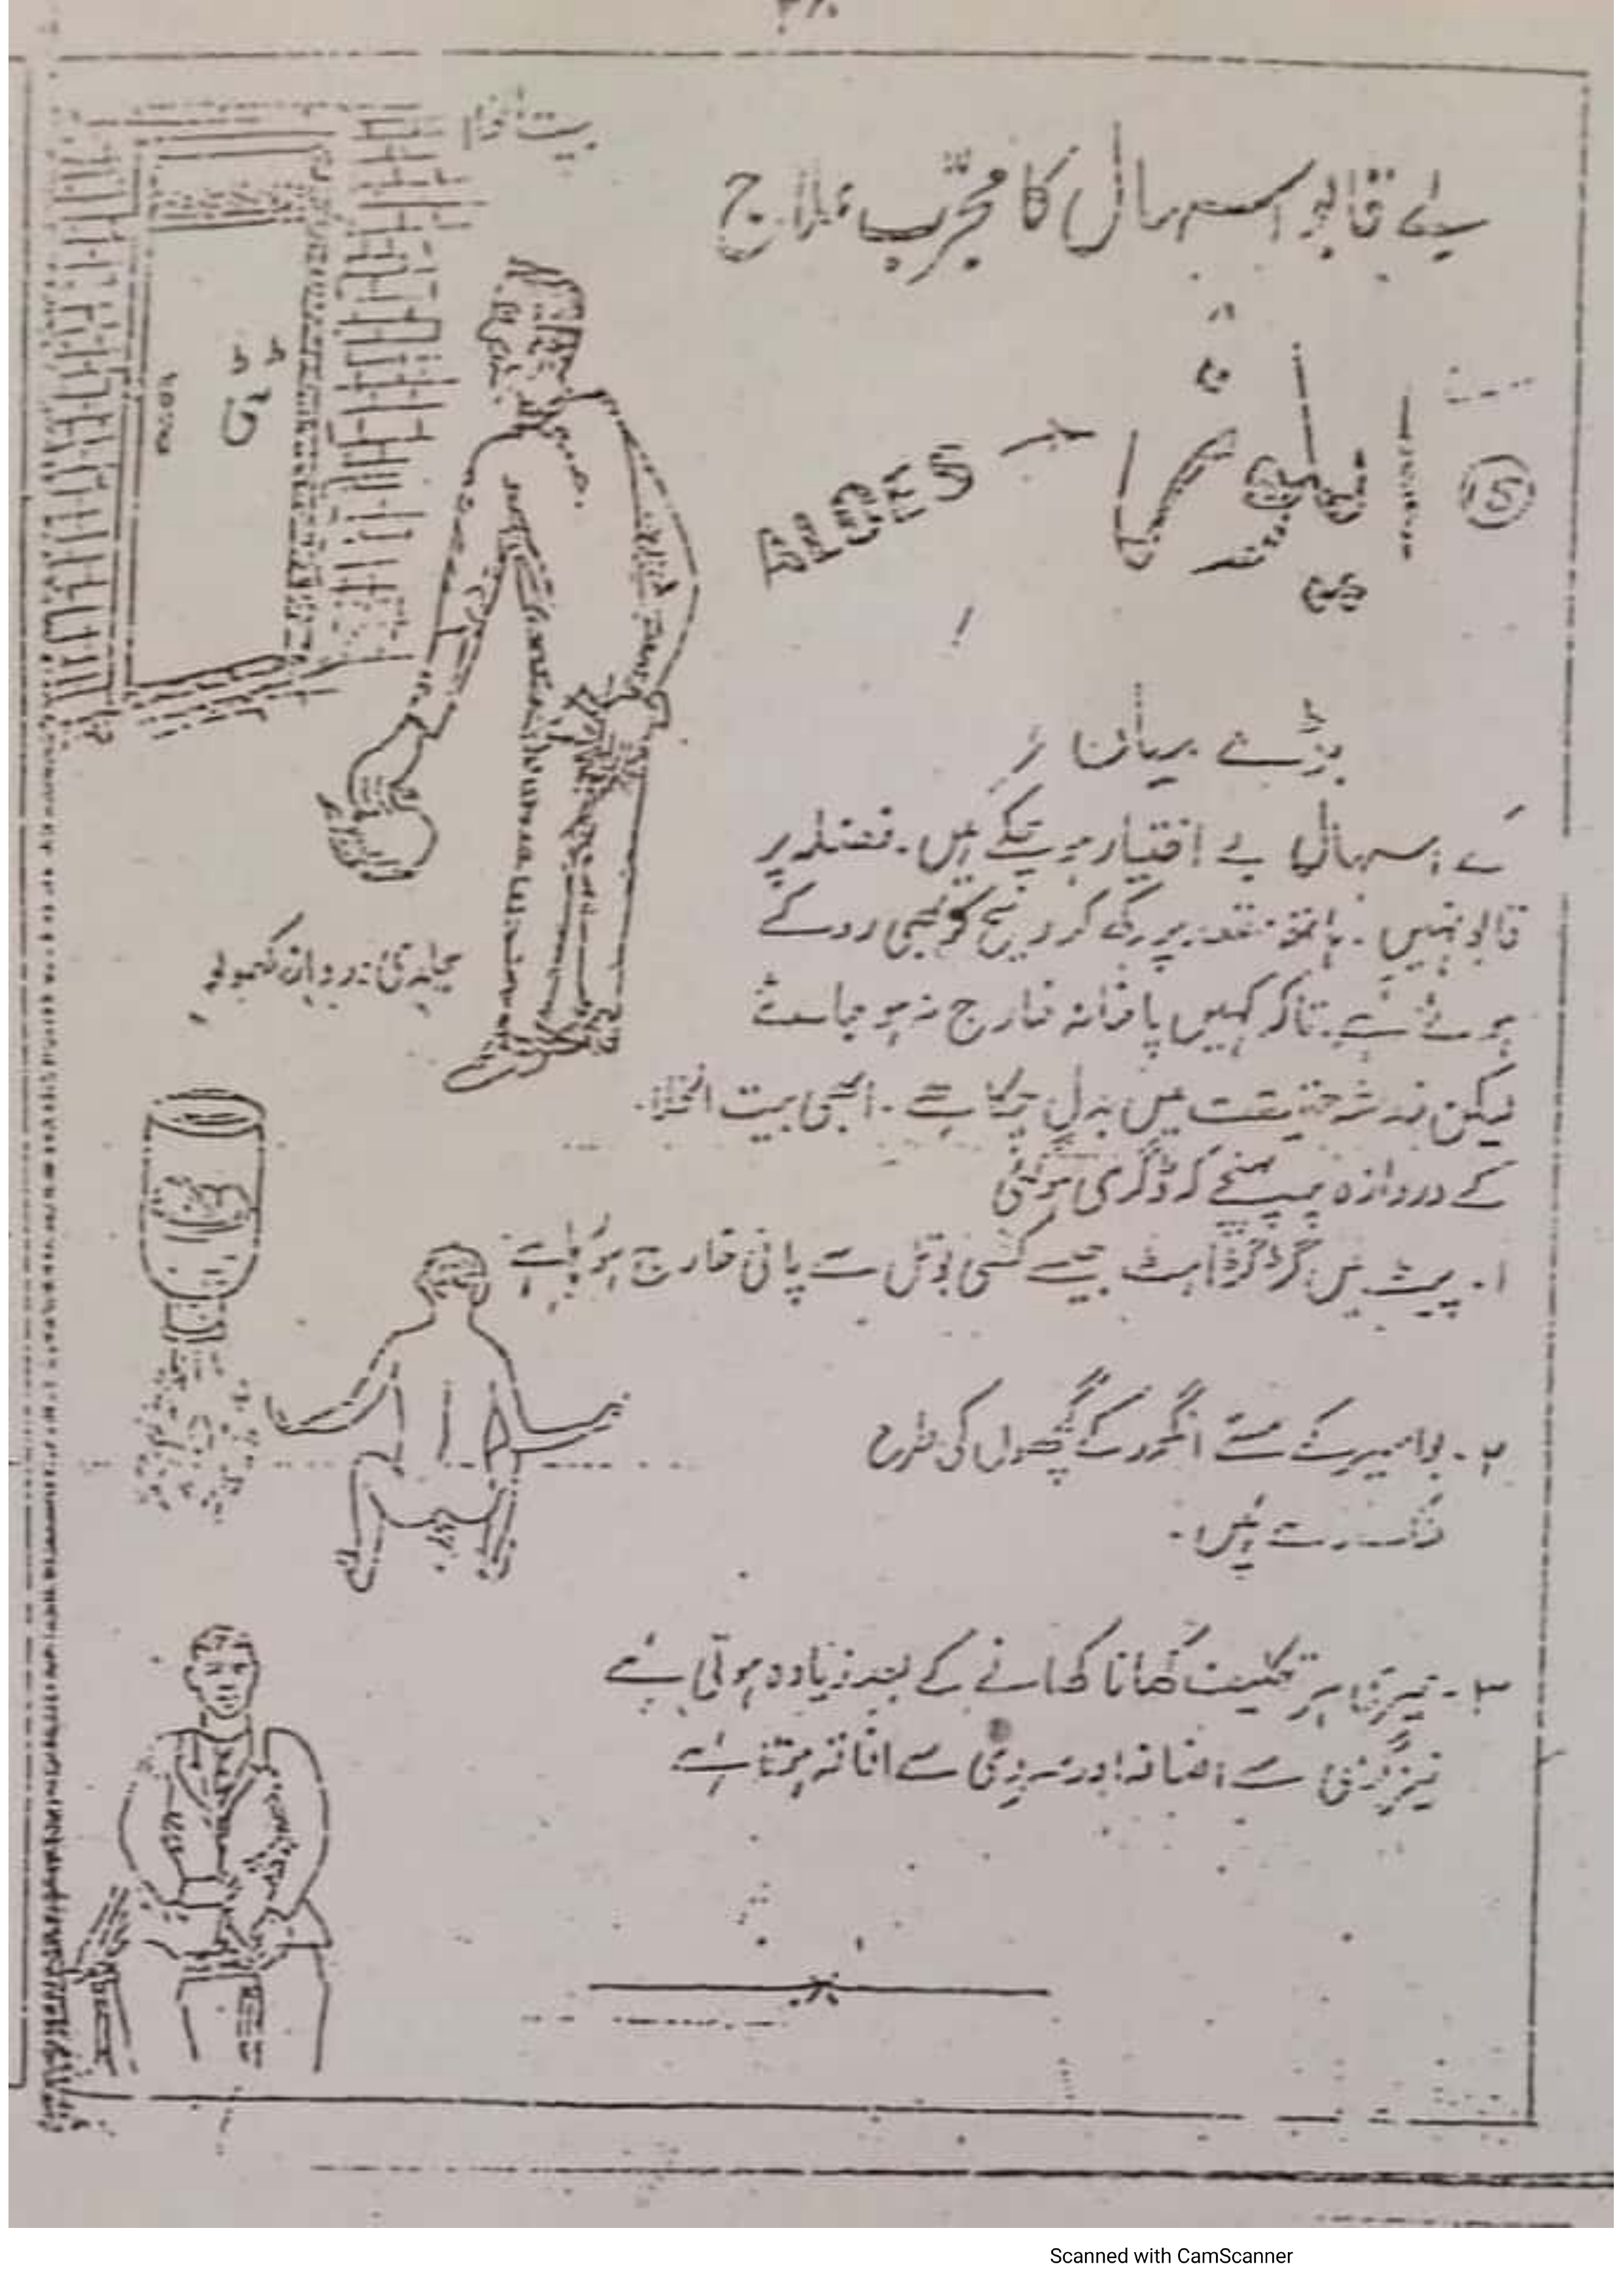 بیت الخلا
بے قابو اسہال کا مجرّب علاج
15
ایلوئز
ALOES
بڑے میاں
کے اسہال بے اختیار ہو چکے ہیں۔ فضلہ پر
قابو نہیں۔ ہاتھ مقعد پر رکھ کر ریح کو بھی روکے
ہوئے ہے۔ تاکہ کہیں پاخانہ خارج نہ ہو جائے
لیکن خدشہ حقیقت میں بدل چکا ہے۔ ابھی بیت الخلا
کے دروازہ پہ پہنچے کر ڈگری ہوگئی
جلدی دروازہ کھولو
۱۔ پیٹ میں گڑگڑاہٹ جیسے کسی بوتل سے پانی خارج ہو رہا ہے
۲۔ بواسیر کے مسے انگور کے گچھوں کی طرح
ہیں۔
۳۔ تکلیف کھانا کھانے کے بعد زیادہ ہوتی ہے
نیز گرمی سے اضافہ اور سردی سے افاقہ ہوتا ہے
Scanned with CamScanner